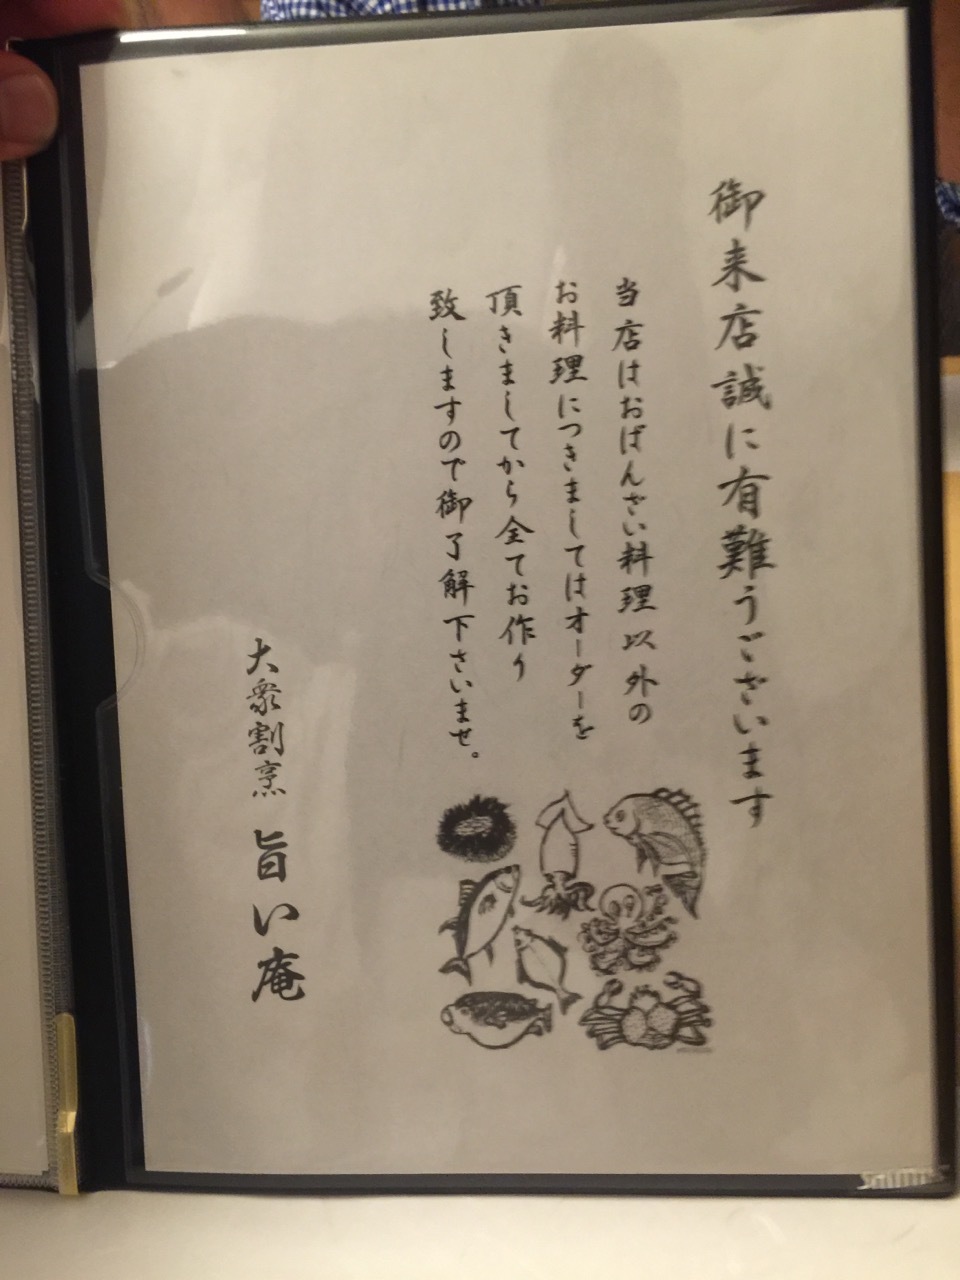 御来店誠に有難うございます
当店はおばんざい料理以外の
お料理につきましてはオーダーを
頂きましてから全てお作り
致しますので御了解下さいませ。
大衆割烹 旨い庵